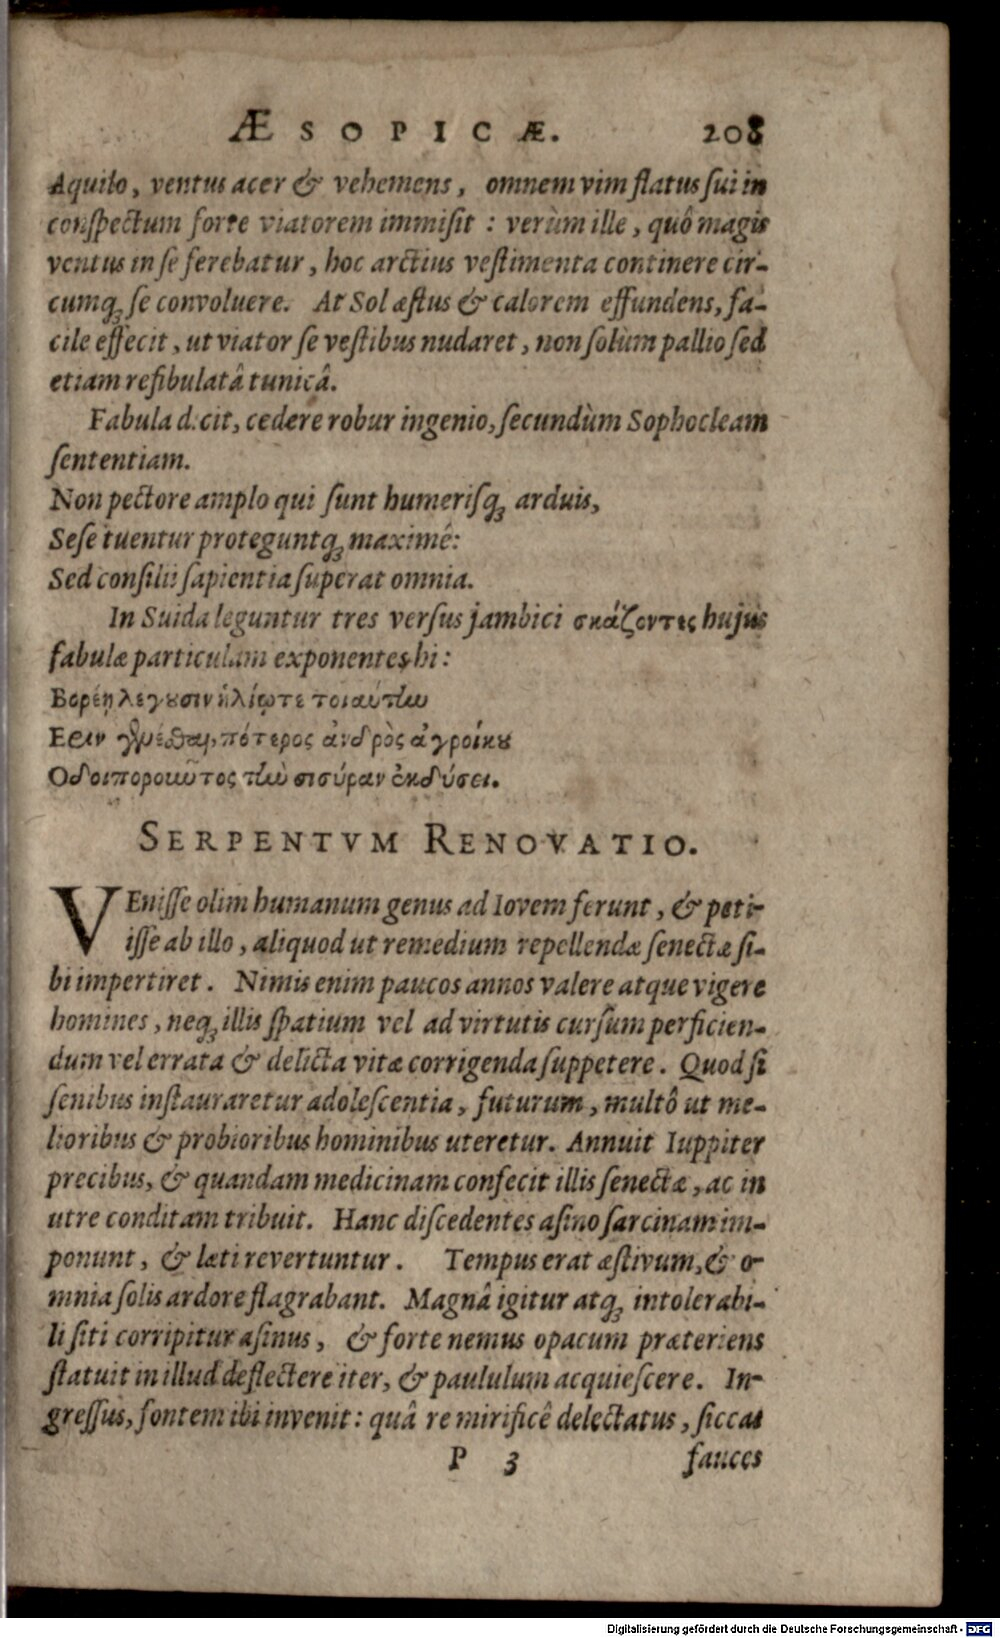 ÆSOPICÆ. 208
Aquilo, ventus acer & vehemens, omnem vim flatus ſui in
conſpectum forte viatorem immiſit : verùm ille, quô magis
ventus in ſe ferebatur, hoc arctius veſtimenta continere cir-
cumq́ꝫ ſe convoluere. At Sol æſtus & calorem effundens, fa-
cile effecit, ut viator ſe veſtibus nudaret, non ſolùm pallio ſed
etiam refibulatâ tunicâ.
Fabula dicit, cedere robur ingenio, ſecundùm Sophocleam
ſententiam.
Non pectore amplo qui ſunt humeriſq́ꝫ arduis,
Seſe tuentur proteguntq́ꝫ maximê:
Sed conſilii ſapientia ſuperat omnia.
In Suida leguntur tres verſus jambici σκάζοντες hujus
fabulæ particulam exponentes hi :
Βορέῃ λεγουσιν ἡλίῳτε τοιαύτην
Εριν γενέσθαι, πότερος ἀνδρὸς ἀγροίκου
Οδοιποροιῶτος τὴν σισύραν ἐκδύσει.
SERPENTVM RENOVATIO.
VEniſſe olim humanum genus ad Iovem ferunt, & peti-
iſſe ab illo, aliquod ut remedium repellendæ ſenectæ ſi-
bi impertiret. Nimis enim paucos annos valere atque vigere
homines, neq́ꝫ illis ſpatium vel ad virtutis curſum perficien-
dum vel errata & delicta vitæ corrigenda ſuppetere. Quod ſi
ſenibus inſtauraretur adoleſcentia, futurum, multô ut me-
lioribus & probioribus hominibus uteretur. Annuit Iuppiter
precibus, & quandam medicinam confecit illis ſenectæ, ac in
utre conditam tribuit. Hanc diſcedentes aſino ſarcinam im-
ponunt, & læti revertuntur. Tempus erat æſtivum, & o-
mnia ſolis ardore flagrabant. Magnâ igitur atq́ꝫ intolerabi-
li ſiti corripitur aſinus, & forte nemus opacum præteriens
ſtatuit in illud deflectere iter, & paululum acquieſcere. In-
greſſus, fontem ibi invenit : quâ re mirificê delectatus, ſiccas
P 3 fauces
Digitalisierung gefördert durch die Deutsche Forschungsgemeinschaft - DFG